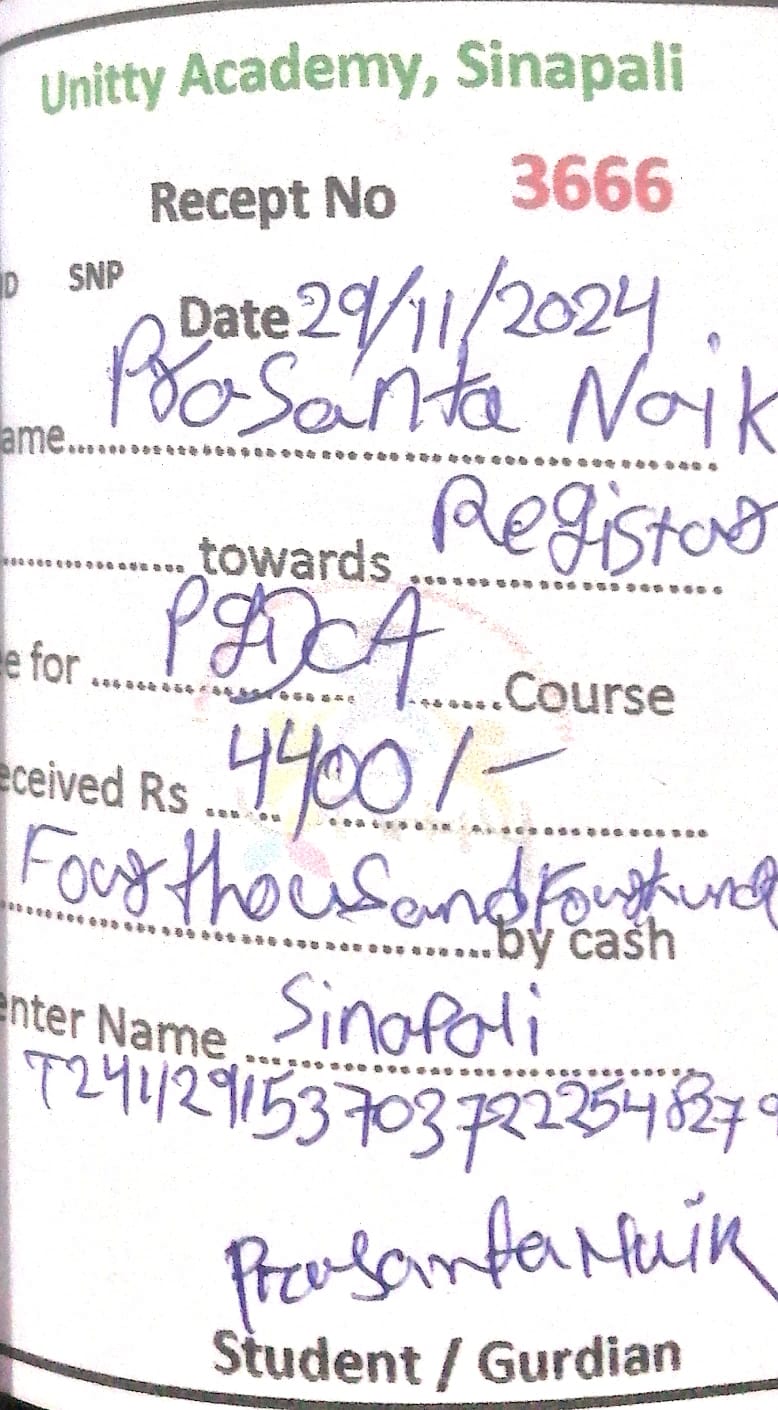 Unitty Academy, Sinapali
Recept No 3666
ID SNP
Date 29/11/2024
ame.......... Prasanta Naik
.......... towards .......... Registar
e for .......... PGDCA .......... Course
eceived Rs .......... 4400/-
Four thousand Four hund
..........by cash
enter Name .......... Sinapali
T241129153703722254827
Prasanta Naik
Student / Gurdian